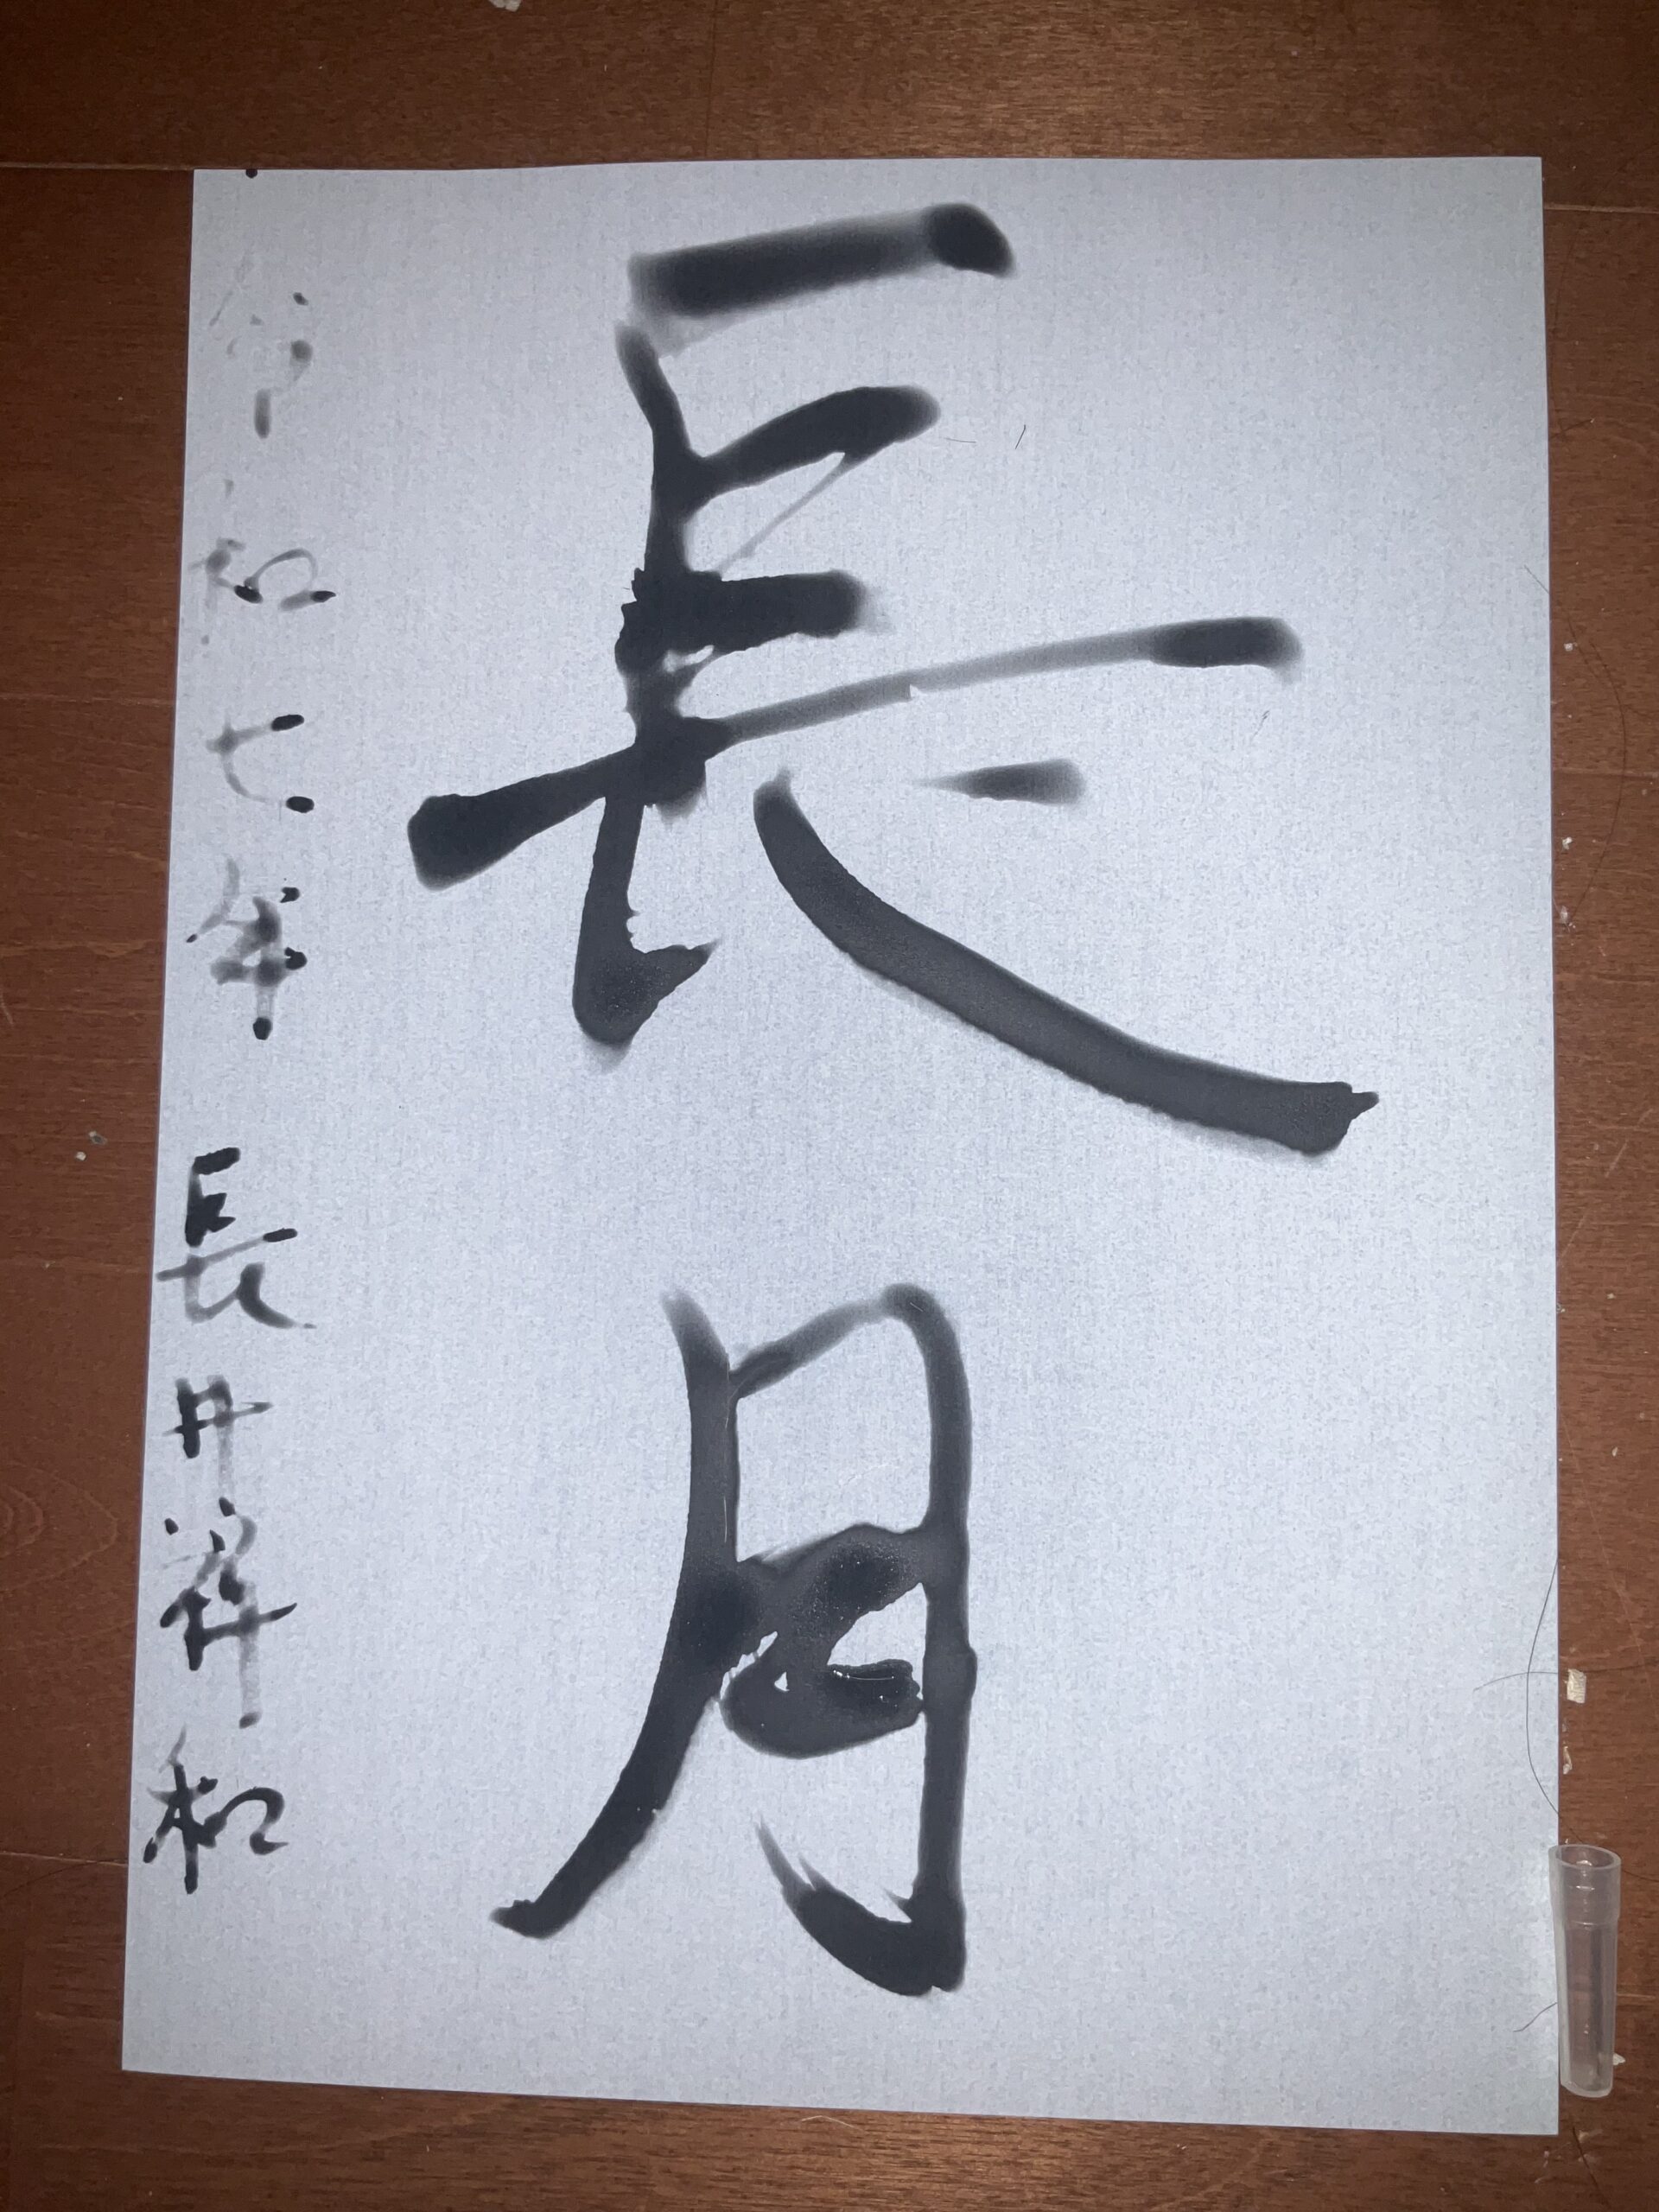 長月
令和七年 長井祥和